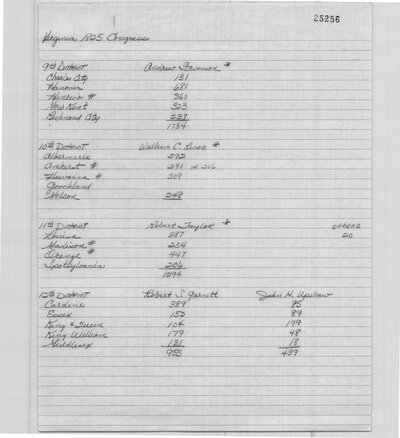 25256
Virginia 1825 Congress
9th District Andrew Stevenson *
Charles City 131
Hanover 681
Henrico # 360
New Kent 323
Richmond City 239
1734
10th District William C. Rives *
Albemarle 292
Amherst # 291 or 266
Fluvanna # 309
Goochland
Nelson 248
11th District Robert Taylor * OTHERS
Louisa 387 20
Madison # 254
Orange # 447
Spotsylvania 206
1294
12th District Robert S. Garnett John H. Upshaw
Caroline 389 85
Essex 152 89
King & Queen 104 199
King William 179 48
Middlesex 131 18
955 439